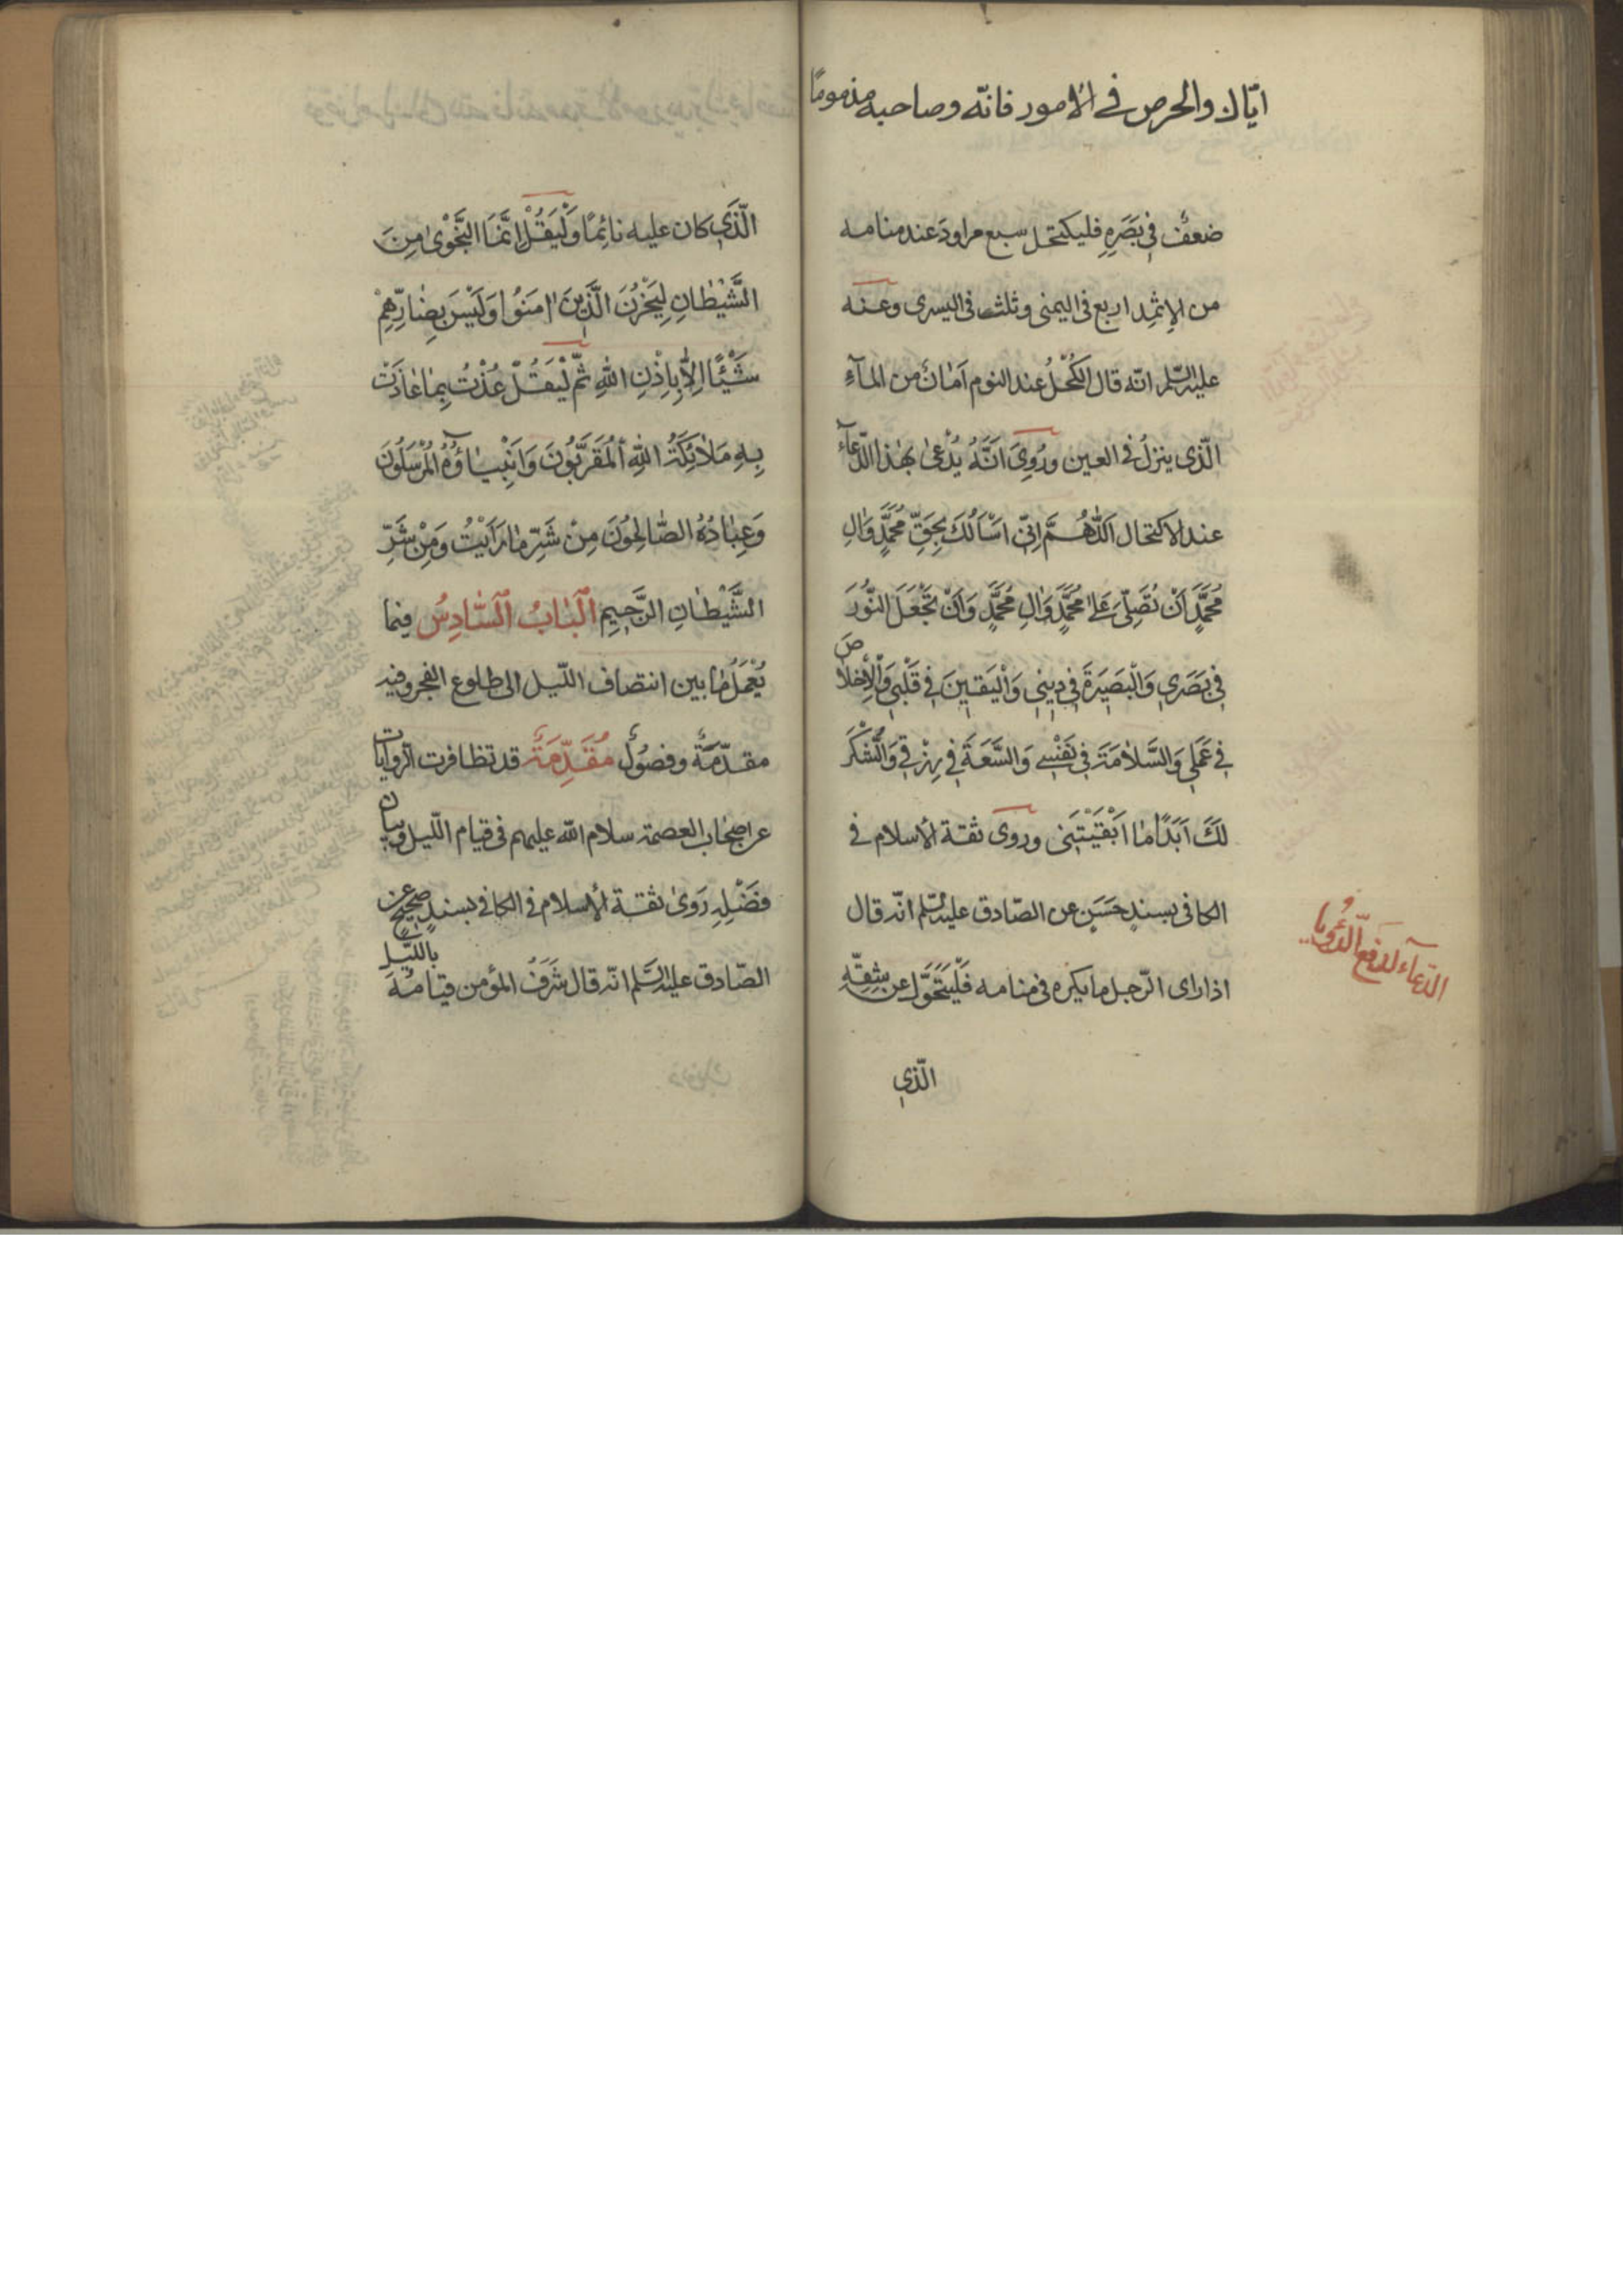 ايّاك والحرص في الأمور فانّه وصاحبه مذمومًا
ضعفٌ فِي بَصَرِهِ فليكتحل سبع مراودَ عند منامه
من الإثمِد اربع في اليمنى وثلث في اليسرى وعنه
عليه السّلم انّه قال الكُحْلُ عند النوم اَمانٌ من المآءِ
الّذى ينزلُ في العين ورُوِىَ اَنَّهُ يُدْعىٰ بهٰذا الدّعآء
عند الاكتحال اَللّٰهُمَّ اِنّى اَسْاَلُكَ بِحَقِّ مُحَمَّدٍ وَاٰلِ
مُحَمَّدٍ اَنْ تُصَلِّىَ عَلىٰ مُحَمَّدٍ وَاٰلِ مُحَمَّدٍ وَاَنْ تَجْعَلَ النُّورَ
فِي بَصَرِي وَالْبَصِيَرةَ فِي دِينِي وَالْيَقِينَ فِي قَلْبِي وَالْإِخْلاصَ
فِي عَمَلِي وَالسَّلامَةَ فِي نَفْسِي وَالسَّعَةَ فِي رِزْقِي وَالشُّكْرَ
لَكَ اَبَدًا مٰا اَبْقَيْتَنِى وروى ثقة الأسلام في
الكافى بسندٍ حَسَنٍ عن الصّادق عليه السّلم انّه قال
اذا راى الرّجل ما يكره فى منامه فَلْيَتَحَوَّل عن شِقِّهِ
الدّعآء لدفع الرُّويا
الّذي
الّذَي كان عليه نائِمًا وَلْيَقُلْ اِنَّمَا النَّجْوىٰ مِنَ
الشَّيْطٰانِ لِيَحْزُنَ الَّذِينَ اٰمَنُوا وَلَيْسَ بِضٰارِّهِمْ
شَيْئًا اِلاّٰ بِاِذْنِ اللهِ ثمّ لْيَقُلْ عُذْتُ بِمٰا عٰاذَتْ
بِهِ مَلاٰئِكَةُ اللهِ اَلْمُقَرَّبُونَ وَاَنْبِيٰاؤُهُ الْمُرْسَلُونَ
وَعِبٰادُهُ الصّٰالِحُونَ مِنْ شَرِّ مٰا رَاَيْتُ وَمِنْ شَرِّ
الشَّيْطٰانِ الرَّجِيمِ اَلْبٰابُ اَلسّٰادِسُ فيما
يُعْمَلُ مٰا بين انتصاف اللّيل الى طلوع الفجر وفيه
مقدّمَةٌ وفصُولٌ مُقَدِّمَةٌ قد تظافرت الرّوايات
عن اصحٰاب العصمة سلام الله عليهم فى قيام اللّيل وبيان
فَضْلِهِ رَوىٰ ثقة الأسلام في الكافي بسندٍ صحيحٍ عن
الصّادق عليه السَّلم انّه قال شَرَفُ المؤمن قيامُهُ بالليّل